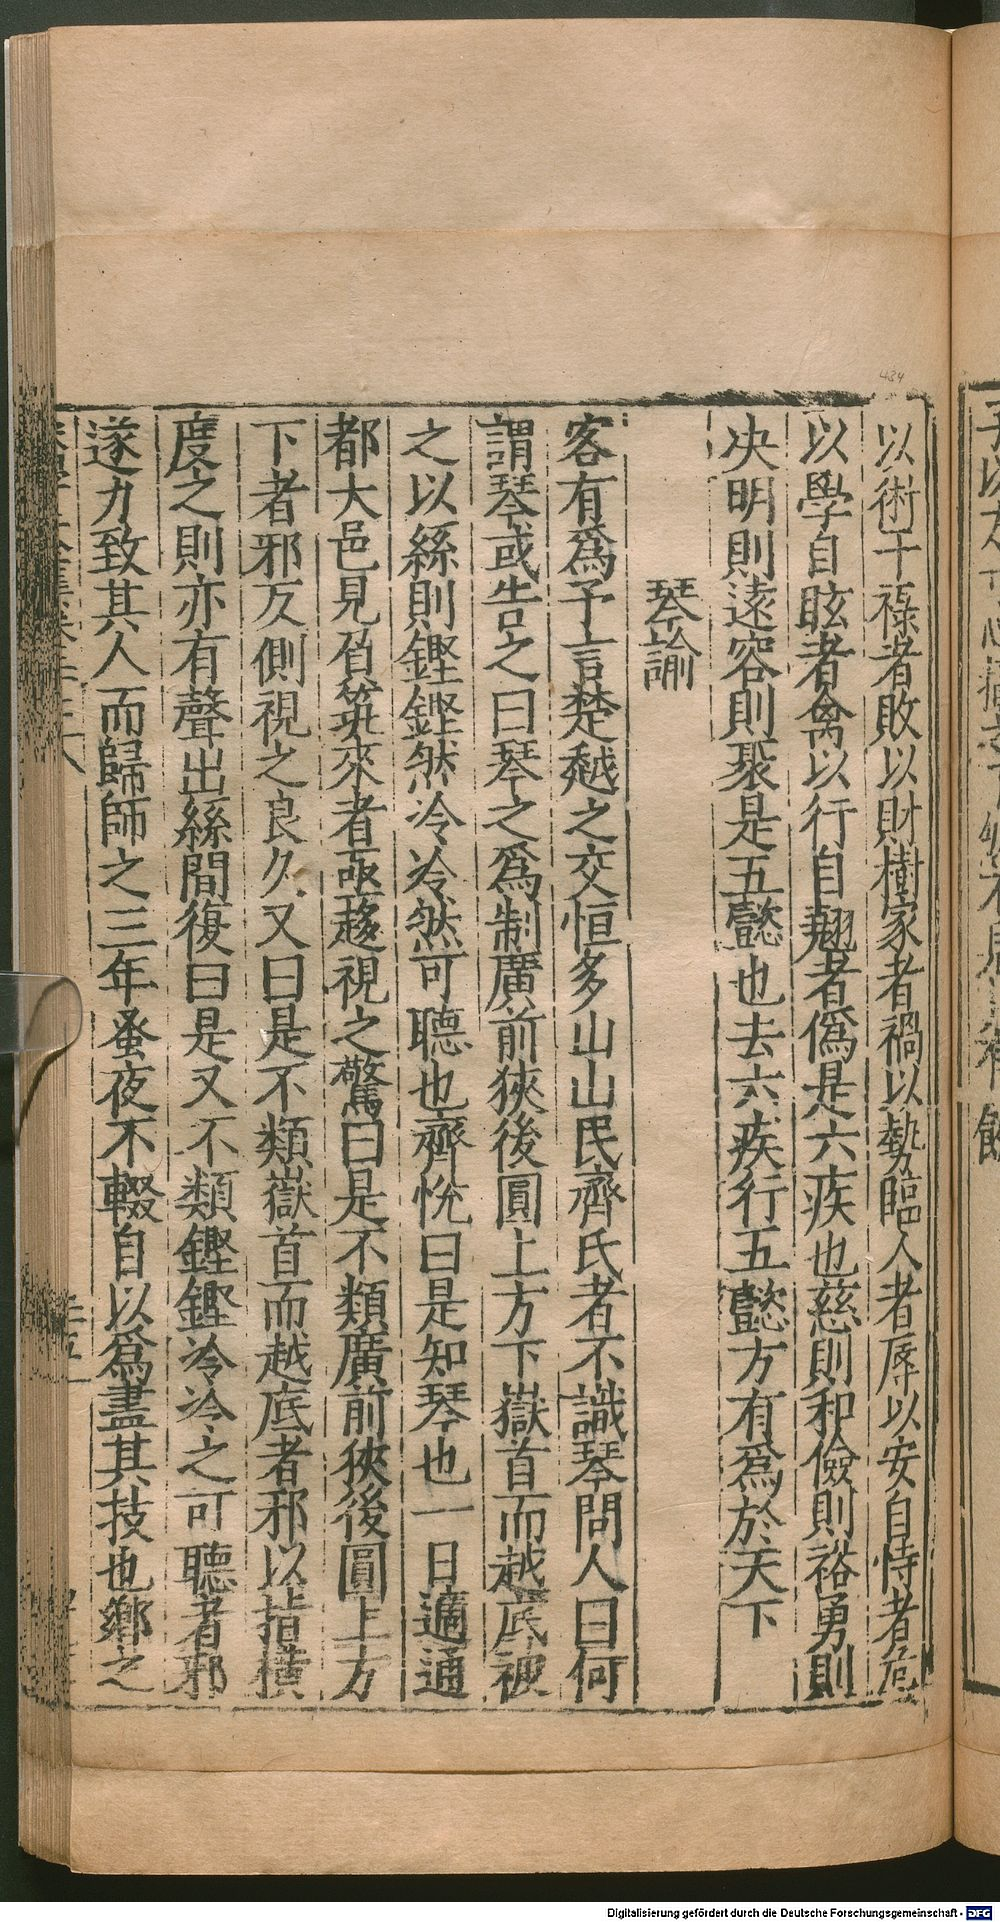 434
以術干祿者敗以財樹家者禍以勢臨人者辱以安自恃者危
以學自眩者禽以行自翹者僞是六疾也慈則和儉則裕勇則
决明則遠容則聚是五懿也去六疾行五懿方有爲於天下
琴諭
客有爲予言楚越之交恒多山山民齊氏者不識琴問人曰何
謂琴或告之曰琴之爲制廣前狹後圓上方下嶽首而越底被
之以絲則鏗鏗然泠泠然可聽也齊悅曰是知琴也一日適通
都大邑見負筑來者亟趍視之驚曰是不類廣前狹後圓上方
下者邪反側視之良久又曰是不類嶽首而越底者邪以指橫
度之則亦有聲出絲間復曰是又不類鏗鏗泠泠之可聽者邪
遂力致其人而歸師之三年蚤夜不輟自以爲盡其技也鄉之
Digitalisierung gefördert durch die Deutsche Forschungsgemeinschaft - DFG